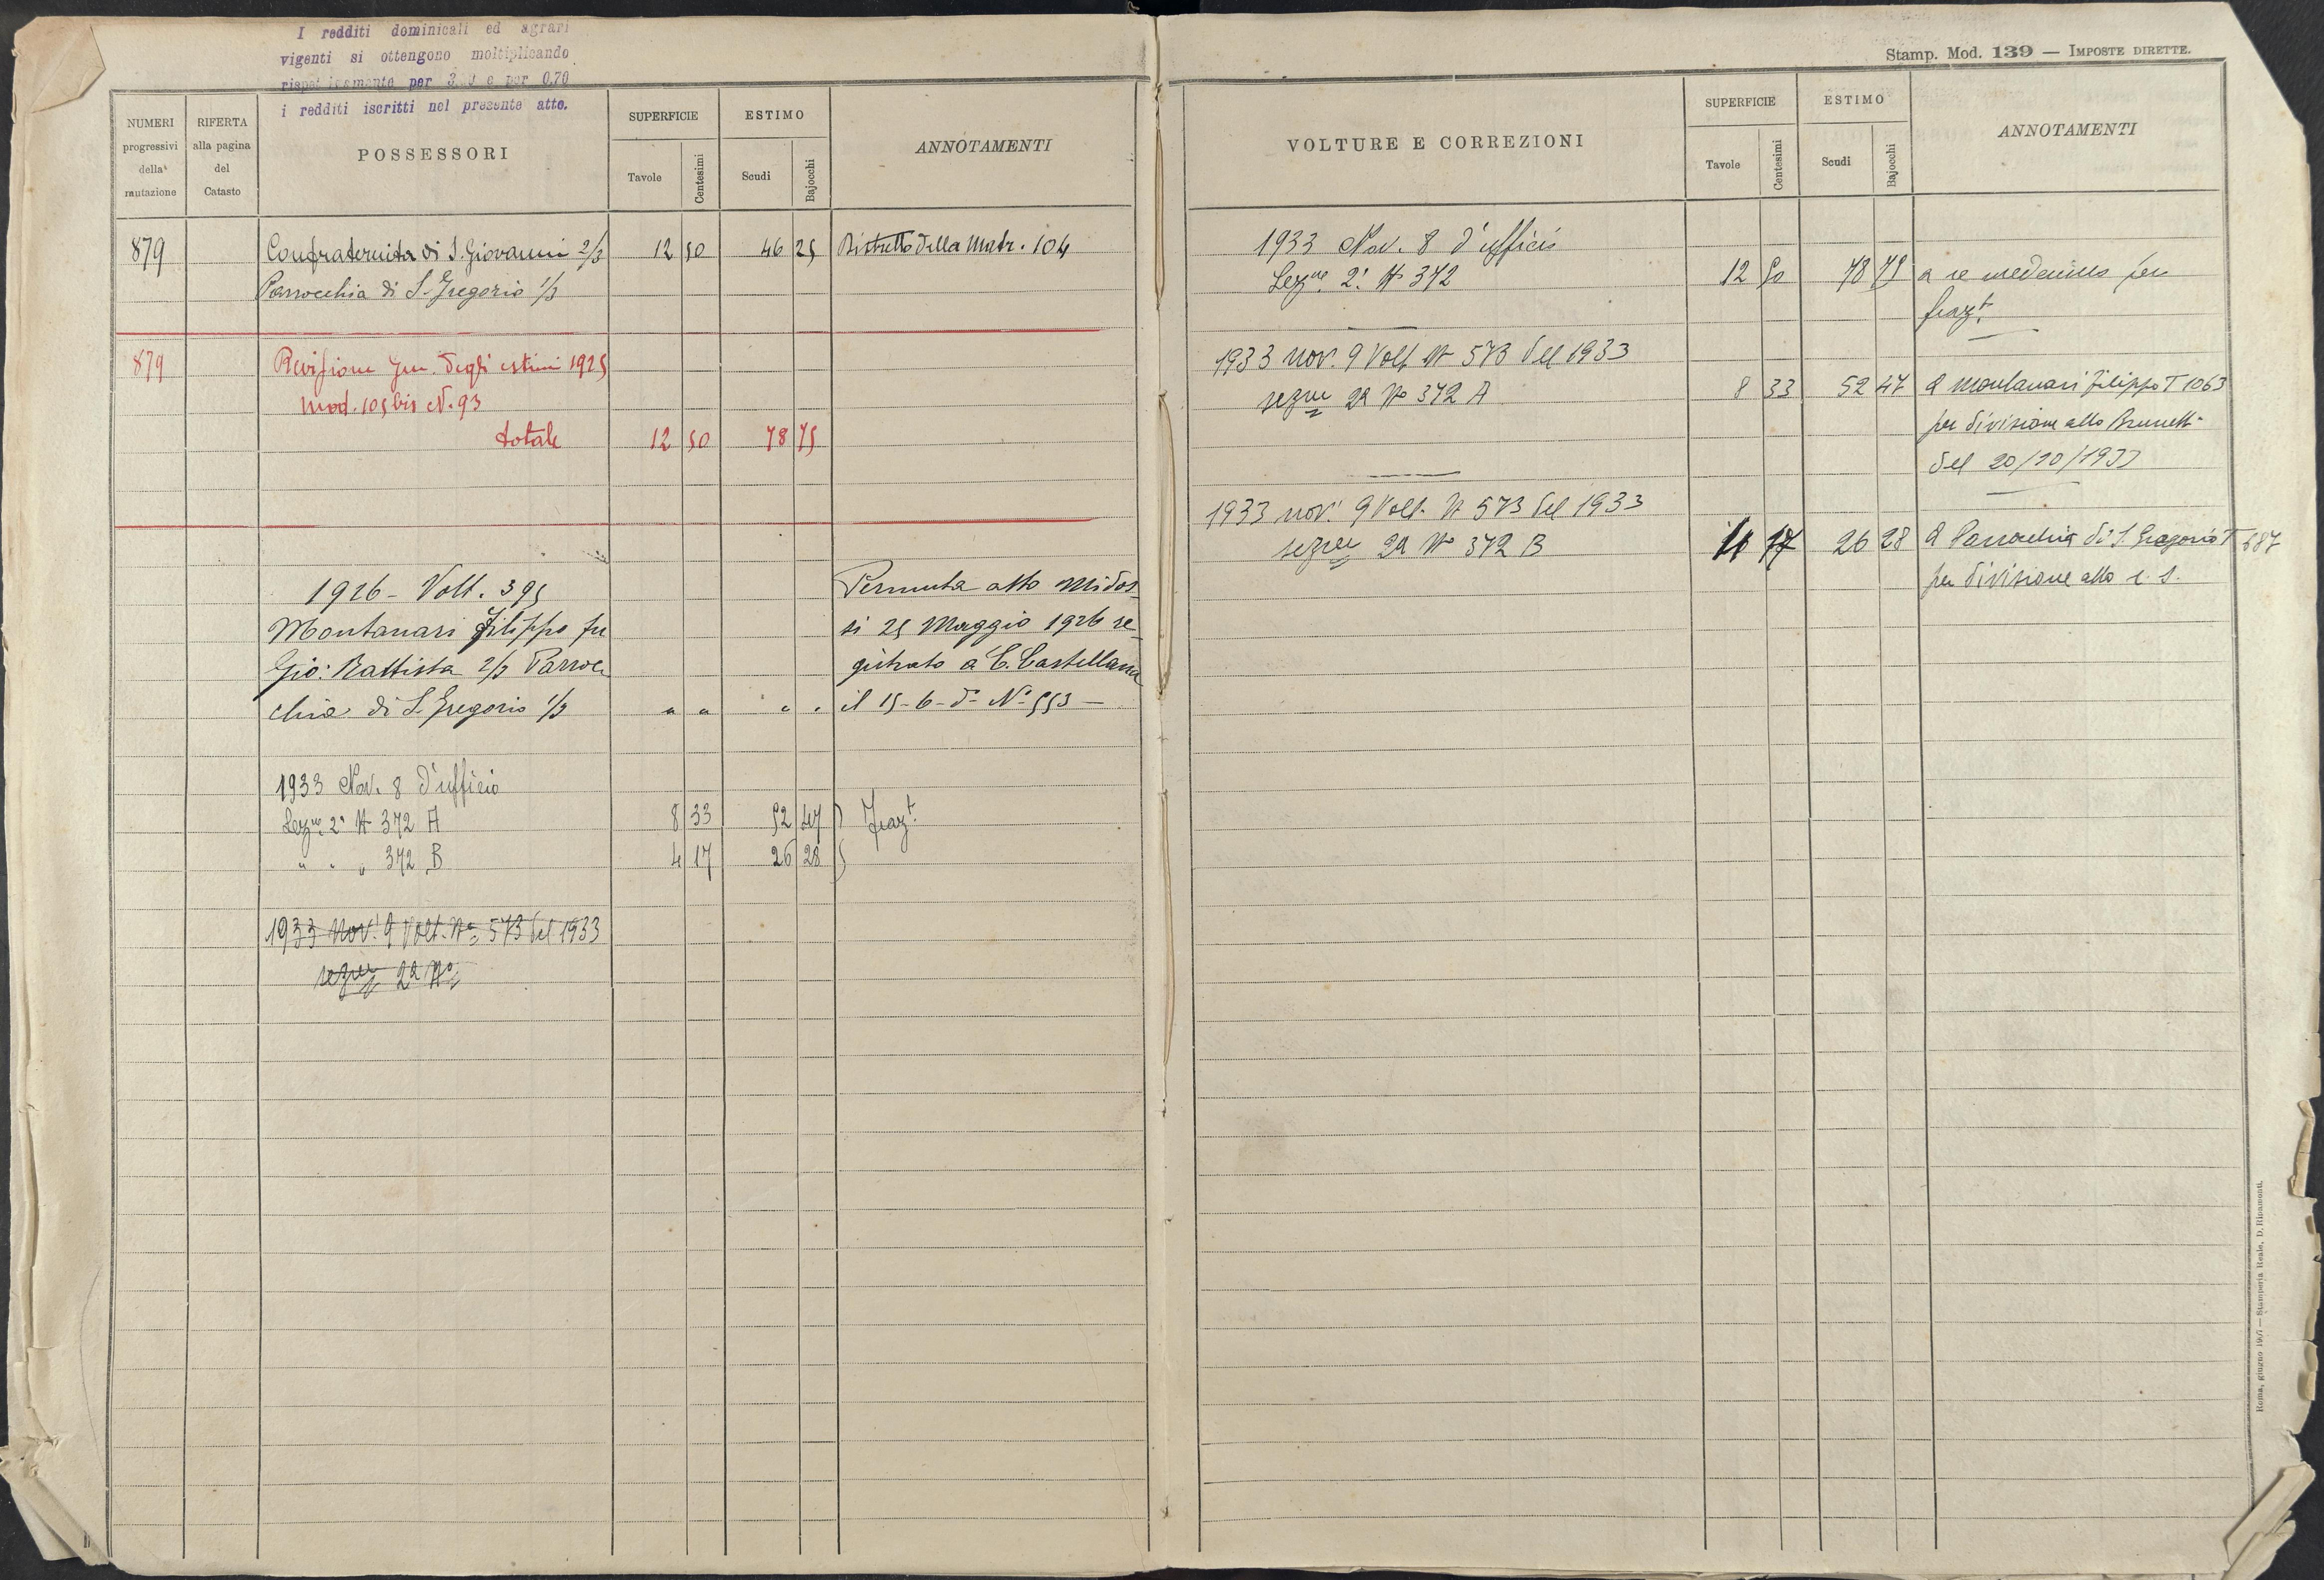 I redditi dominicali ed agrari
vigenti si ottengono moltiplicando
per e per 0,70
i redditi iscritti nel presente atto.
NUMERI progressivi della mutazione
RIFERTA alla pagina del Catasto
POSSESSORI
SUPERFICIE
Tavole
Centesimi
ESTIMO
Scudi
Bajocchi
ANNOTAMENTI
879 Confraternita di S. Giovanni 2/3 12 50 46 25 Ristretto della Matr. 104
Parrocchia di S. Gregorio 1/3
879 Revisione Gen. degli estimi 1925
Mod. 105 bis N. 93
totale 12 50 78 75
1926 - Volt. 395 Permuta atto Midos
Montanari Filippo fu si 25 Maggio 1926 re
Gio: Battista 2/3 Parroc gistrato a C. Castellana
chia di S. Gregorio 1/3 " " " " il 15-6-do No 553 —
1933 Nov. 8 d'ufficio
Sezne 2a No 372 A 8 33 52 47 Frazt.
" " " 372 B 4 17 26 28
1933 Nov. 9 Volt. No 573 del 1933
sezne 2a No
Stamp. Mod. 139 — IMPOSTE DIRETTE.
VOLTURE E CORREZIONI
SUPERFICIE
Tavole
Centesimi
ESTIMO
Scudi
Bajocchi
ANNOTAMENTI
1933 Nov. 8 d'ufficio
Sezne 2a No 372 12 50 78 75 a se medesimi per
frazt.
1933 nov. 9 Volt. No 573 del 1933
sezne 2a No 372 A 8 33 52 47 A Montanari Filippo T 1063
per divisione atto Brunetti
del 20/10/1933
1933 nov. 9 Volt. No 573 del 1933
sezne 2a No 372 B 4 17 26 28 A Parrocchia di S. Gregorio T 687
per divisione atto c. s.
Roma, giugno 1907 — Stamperia Reale, D. Ripamonti.